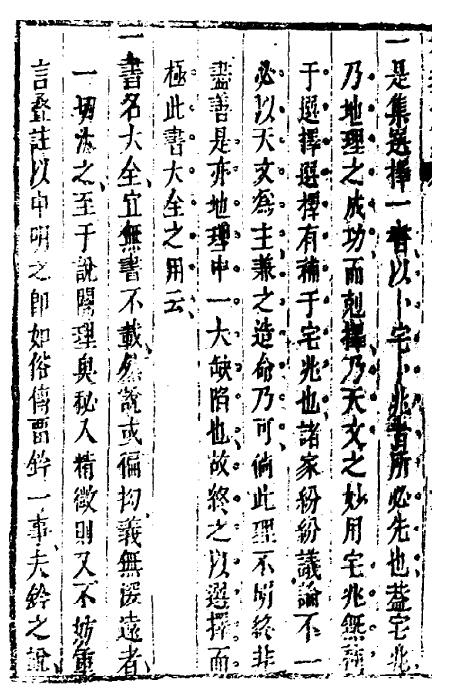 一是集選擇一書以卜宅卜兆者所必先也蓋宅兆
乃地理之成功而剋擇乃天文之妙用宅兆無禆
于選擇選擇有補于宅兆也諸家紛紛議論不一
必以天文為主兼之造命乃可倘此理不明終非
盡善是亦地理中一大缺陷也故終之以選擇而
極此書大全之用云
一書名大全宜無書不載然說或偏拘義無深遠者
一切汰之至于說闡理奥秘入精微則又不妨重
言叠註以申明之即如俗傳曹鈐一事夫鈐之說